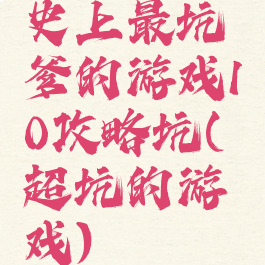 史上最坑
爹的游戏1
0攻略坑(
超坑的游
戏)